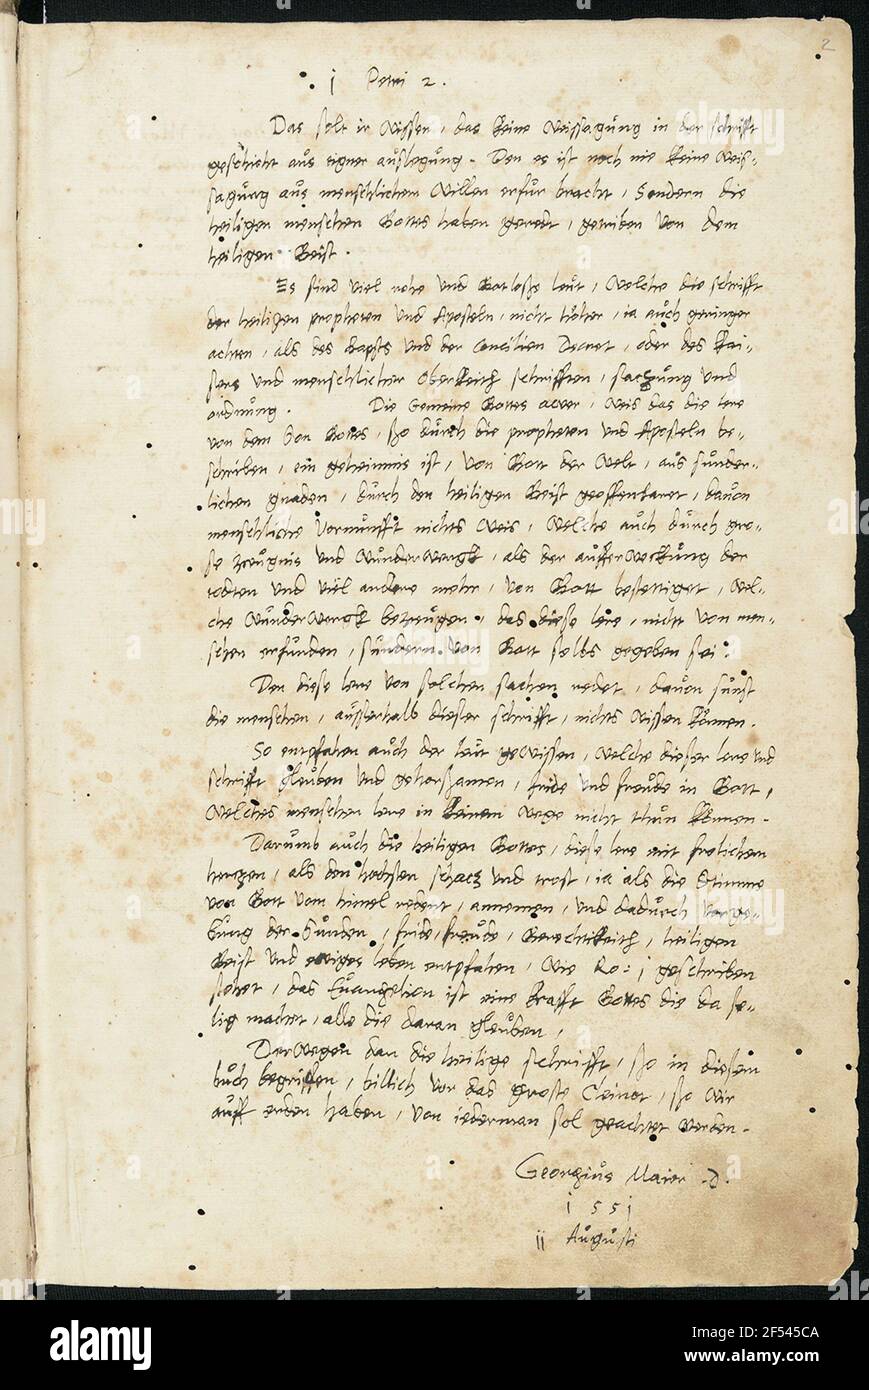 2
j Petri 2.
Das solt ir wissen, das keine weissagung in der schrifft
geschicht aus eigner auslegung. Den es ist noch nie keine weis-
sagung aus menschlichem willen erfur bracht, Sondern die
heiligen menschen Gottes haben geredt, getriben von dem
heiligen Geist.
Es sind viel rohe und Gotlosse leut, welche die schrifft
der heiligen propheten und Aposteln, nicht hoher, ia auch geringer
achten, als des Bapsts und der Concilien Decret, oder des Kai-
sers und menschlicher Oberkeith schrifften, saczung und
ordnung. Die Gemeine Gottes aber, weis das die lere
von dem Son Gottes, sso durch die propheten und Aposteln be-
schriben, ein geheimnis ist, von Gott der welt, aus sunder-
lichen gnaden, durch den heiligen Geist geoffenbaret, davon
menschliche vornunfft nichts weis, welche auch durch gro-
sse zeugnis und wunderwergk, als der aufferweckung der
todten und viel andere mehr, von Gott bestettiget, wel-
che wunderwergk betzeugen, das diese lere, nicht von men-
schen erfunden, sundern von Gott selbs gegeben sei.
Den diese lere von solchen sachen redet, davon sunst
die menschen, ausserhalb dieser schrifft, nichts wissen konnen.
So entpfahen auch der leut gewissen, welche dieser lere und
schrifft gleuben und gehorsamen, fride und freude in Gott,
welches menschen lere in keinen wege nicht thun konnen.
Darumb auch die heiligen Gottes, diese lere mit frolichen
herczen, als den hochsten schacz und trost, ia als die Stimme
von Gott vom himel redent, annemen, und dadurch vorge-
bung der Sunden, fride, freude, Gerechtikeith, heiligen
Geist und ewiges leben entpfahen, wie Ro: j geschriben
stehet, das Euangelion ist eine krafft Gottes die da se-
lig machet, alle die daran gleuben,
Derwegen dan die heilige schrifft, sso in diesem
buch begriffen, billich vor das groste Cleinot, sso wir
auff erden haben, von iederman sol geachtet werden.
Georgius Maior .D.
j 5 5 j
ii Augusti
alamy
Image ID: 2F545CA
www.alamy.com